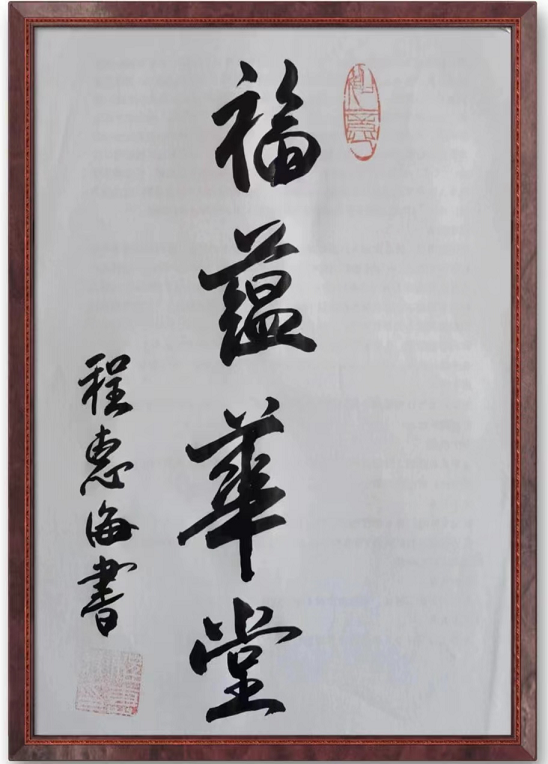 福蕴華堂
程惠海書